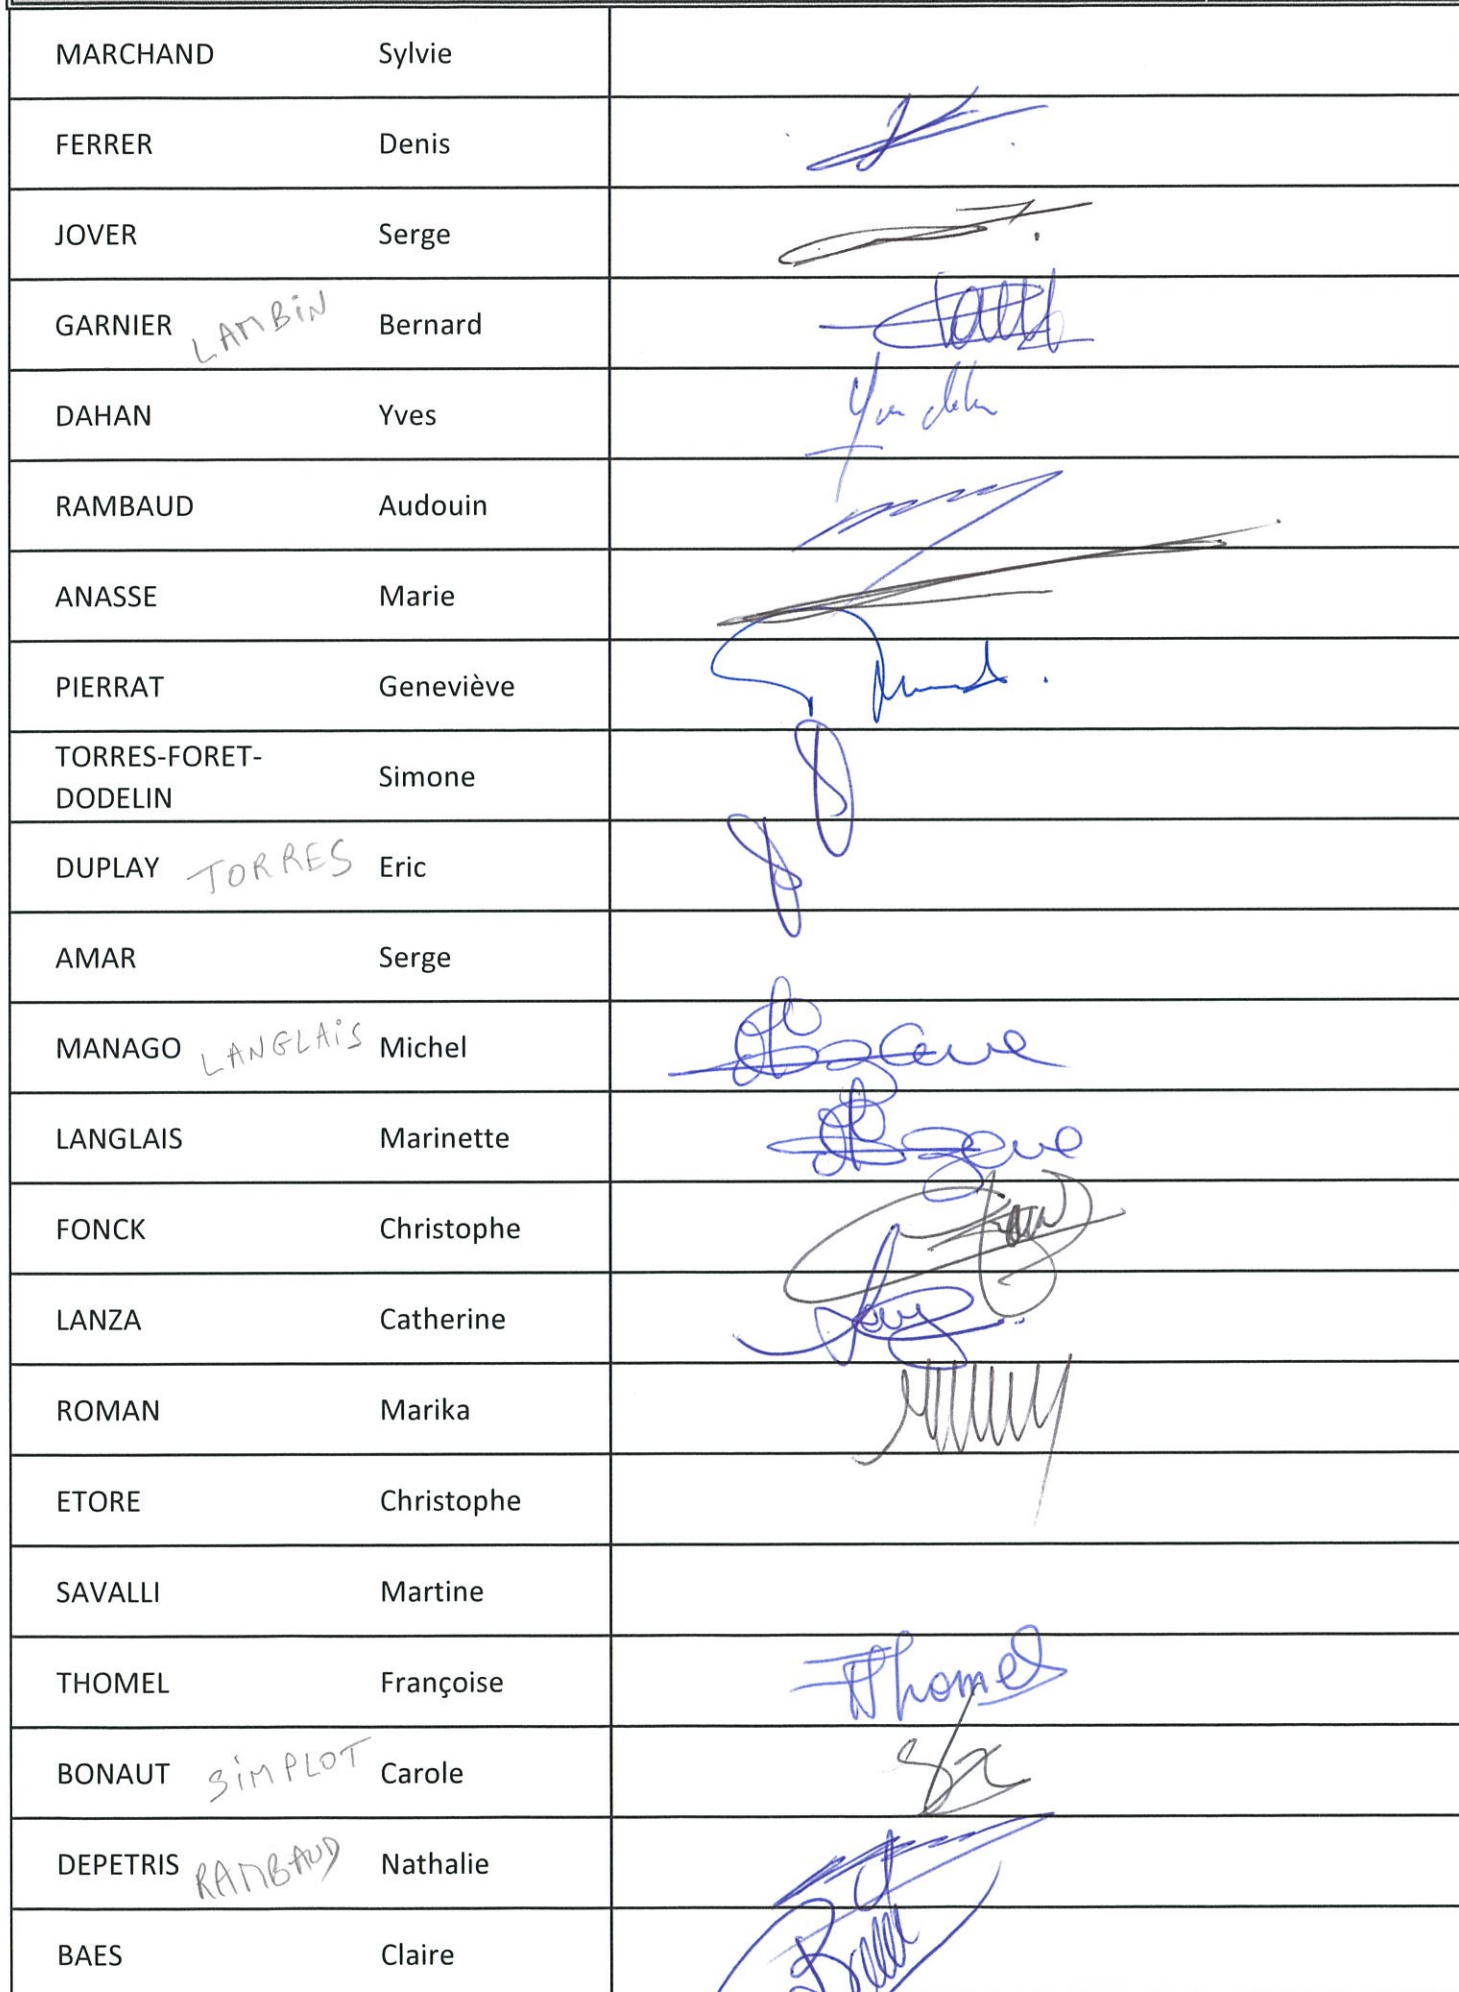 MARCHAND Sylvie
FERRER Denis
JOVER Serge
GARNIER LAMBIN Bernard
DAHAN Yves
RAMBAUD Audouin
ANASSE Marie
PIERRAT Geneviève
TORRES-FORET-
DODELIN Simone
DUPLAY TORRES Eric
AMAR Serge
MANAGO LANGLAIS Michel
LANGLAIS Marinette
FONCK Christophe
LANZA Catherine
ROMAN Marika
ETORE Christophe
SAVALLI Martine
THOMEL Françoise Thomel
BONAUT SIMPLOT Carole
DEPETRIS RAMBAUD Nathalie
BAES Claire